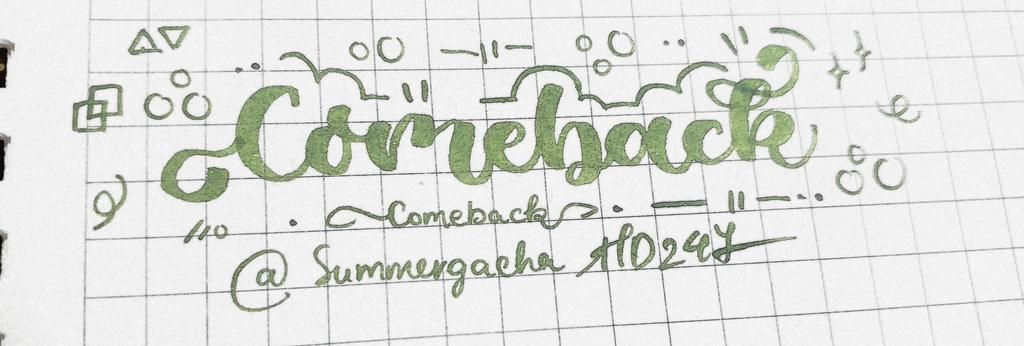 Comeback
Comeback
@ Summergacha